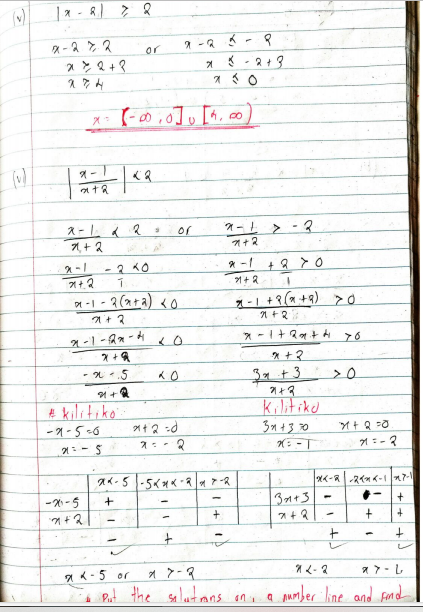 (v) |x - 2| ≥ 2
x - 2 ≥ 2 or x - 2 ≤ - 2
x ≥ 2 + 2 x ≤ - 2 + 2
x ≥ 4 x ≤ 0
x = [-∞, 0] ∪ [4, ∞)
(vi) |x - 1 / x + 2| < 2
x - 1 / x + 2 < 2 or x - 1 / x + 2 > - 2
x - 1 / x + 2 - 2 / 1 < 0 x - 1 / x + 2 + 2 / 1 > 0
x - 1 - 2(x + 2) / x + 2 < 0 x - 1 + 2(x + 2) / x + 2 > 0
x - 1 - 2x - 4 / x + 2 < 0 x - 1 + 2x + 4 / x + 2 > 0
-x - 5 / x + 2 < 0 3x + 3 / x + 2 > 0
# kilitiko Kilitiko
-x - 5 = 0 x + 2 = 0 3x + 3 = 0 x + 2 = 0
x = - 5 x = - 2 x = - 1 x = - 2
x < -5 -5 < x < -2 x > -2 x < -2 -2 < x < -1 x > -1
-x - 5 + - - 3x + 3 - - +
x + 2 - - + x + 2 - + +
- + - + - +
x < -5 or x > -2 x < -2 x > -1
Put the solutions on a number line and find